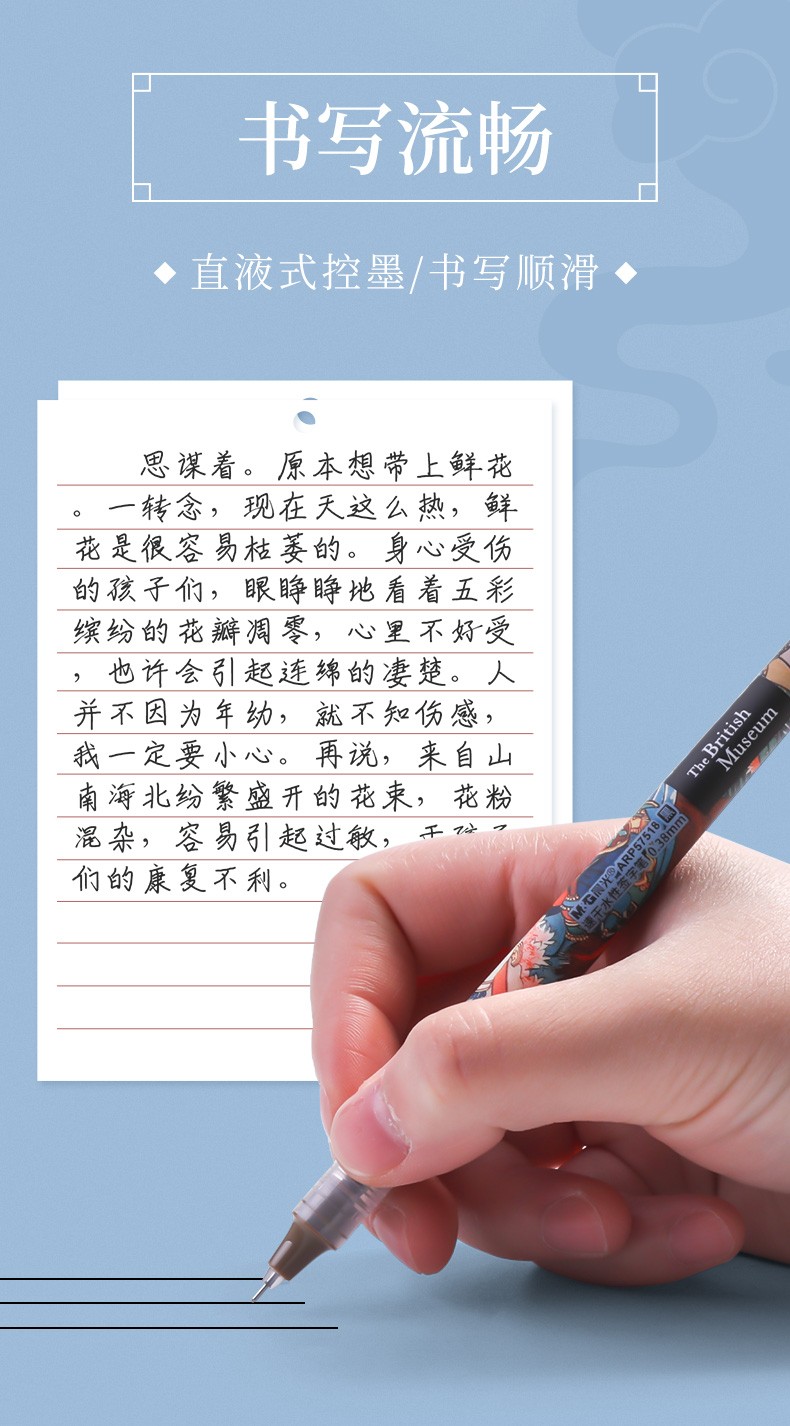 书写流畅
◆ 直液式控墨/书写顺滑 ◆
思谋着。原本想带上鲜花
。一转念，现在天这么热，鲜
花是很容易枯萎的。身心受伤
的孩子们，眼睁睁地看着五彩
缤纷的花瓣凋零，心里不好受
，也许会引起连绵的凄楚。人
并不因为年幼，就不知伤感，
我一定要小心。再说，来自山
南海北纷繁盛开的花束，花粉
混杂，容易引起过敏，
们的康复不利。
The British
Museum
M&G晨光®ARP57518
速干水性签字笔 0.38mm